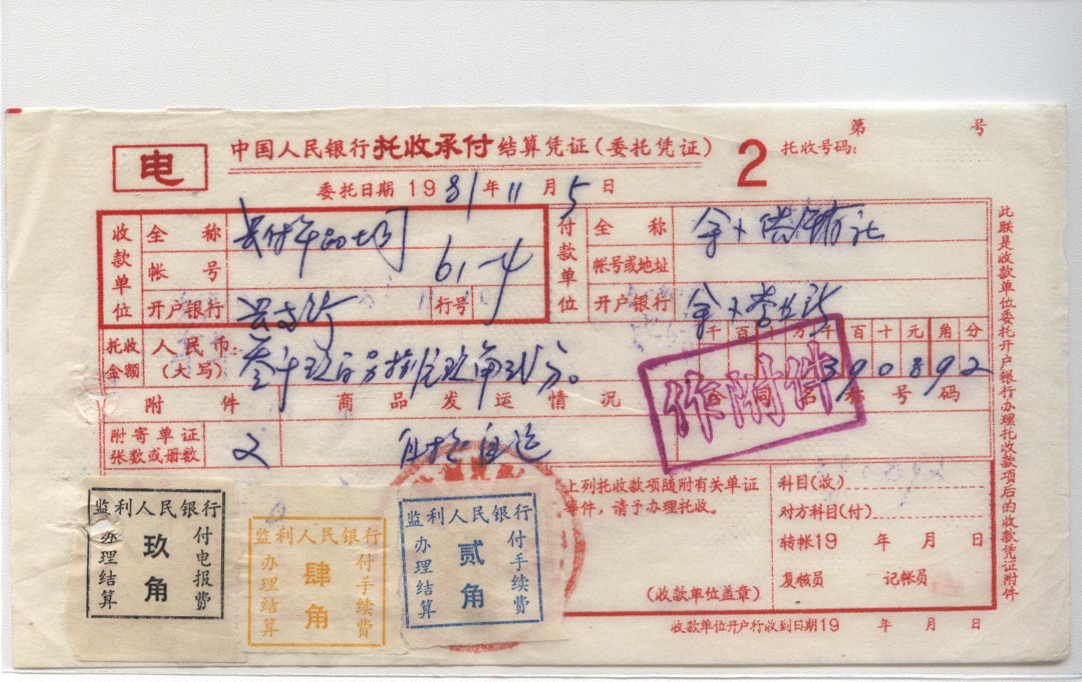 第 号
电
中国人民银行托收承付结算凭证（委托凭证）
2
托收号码：
委托日期 1981年11月5日
收款单位
全称
帐号 61-4
开户银行
行号
付款单位
全称
帐号或地址
开户银行
托收金额
人民币：（大写）
千百十万千百十元角分
390892
附件
商品发运情况
合同名称号码
作附件
附寄单证张数或册数
自提自运
上列托收款项随附有关单证等件，请予办理托收。
（收款单位盖章）
科目（收）
对方科目（付）
转帐19 年 月 日
复核员 记帐员
收款单位开户行收到日期19 年 月 日
此联是收款单位委托开户银行办理托收款项后的收款凭证附件
监利人民银行
办理结算
玖角
付电报费
监利人民银行
办理结算
肆角
付手续费
监利人民银行
办理结算
贰角
付手续费